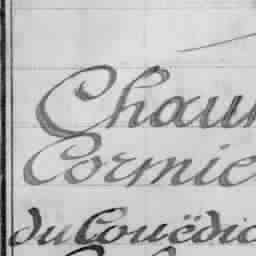 Chaun
Cormie
du Couëdic